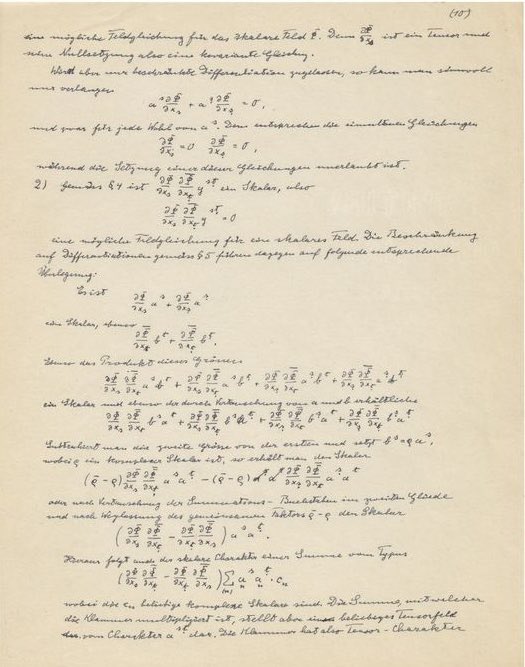 (10)
eine mögliche Feldgleichung für das skalare Feld Φ. Denn ∂Φ/∂x_s ist ein Tensor und
seine Nullsetzung also eine kovariante Gleichung.
Wird aber nur beschränkte Differentiation zugelassen, so kann man sinnvoll
nur verlangen
a^s ∂Φ/∂x_s + ∂Φ/∂x_s = 0,
und zwar für jede Wahl von a^s. Dem entsprechen die simultanen Gleichungen
∂Φ/∂x_s = 0 ∂Φ/∂x_s = 0,
während die Setzung einer dieser Gleichungen unerlaubt ist.
2) Gemäss § 4 ist ∂Φ/∂x_s ∂Φ/∂x_t g^st ein Skalar, also
∂Φ/∂x_s ∂Φ/∂x_t g^st = 0
eine mögliche Feldgleichung für ein skalares Feld. Die Beschränkung
auf Differentiationen gemäss § 5 führen dagegen auf folgende entsprechende
Überlegung:
Es ist
∂Φ/∂x_s a^s + ∂Φ/∂x_s
ein Skalar, ebenso
∂Φ/∂x_t b^t + ∂Φ/∂x_t b^t.
Ebenso das Produkt dieser Grössen
ein Skalar und ebenso der durch Vertauschung von a und b erhältliche
Subtrahiert man die zweite Grösse von der ersten und setzt b^s = ρ a^s,
wobei ρ ein komplexer Skalar ist, so erhält man den Skalar
oder nach Vertauschung der Summations-Buchstaben im zweiten Gliede
und nach Weglassung des gemeinsamen Faktors ρ - ρ den Skalar
(∂Φ/∂x_s ∂Φ/∂x_t - ∂Φ/∂x_t ∂Φ/∂x_s) a^s a^t.
Hieraus folgt auch der skalare Charakter einer Summe vom Typus
(∂Φ/∂x_s ∂Φ/∂x_t - ∂Φ/∂x_t ∂Φ/∂x_s) Σ a^s a^t . c_n
wobei die c_n beliebige komplexe Skalare sind. Die Summe, mit welcher
die Klammer multipliziert ist, stellt aber ein beliebiges Tensorfeld
vom Charakter a^st dar. Die Klammer hat also Tensor-Charakter